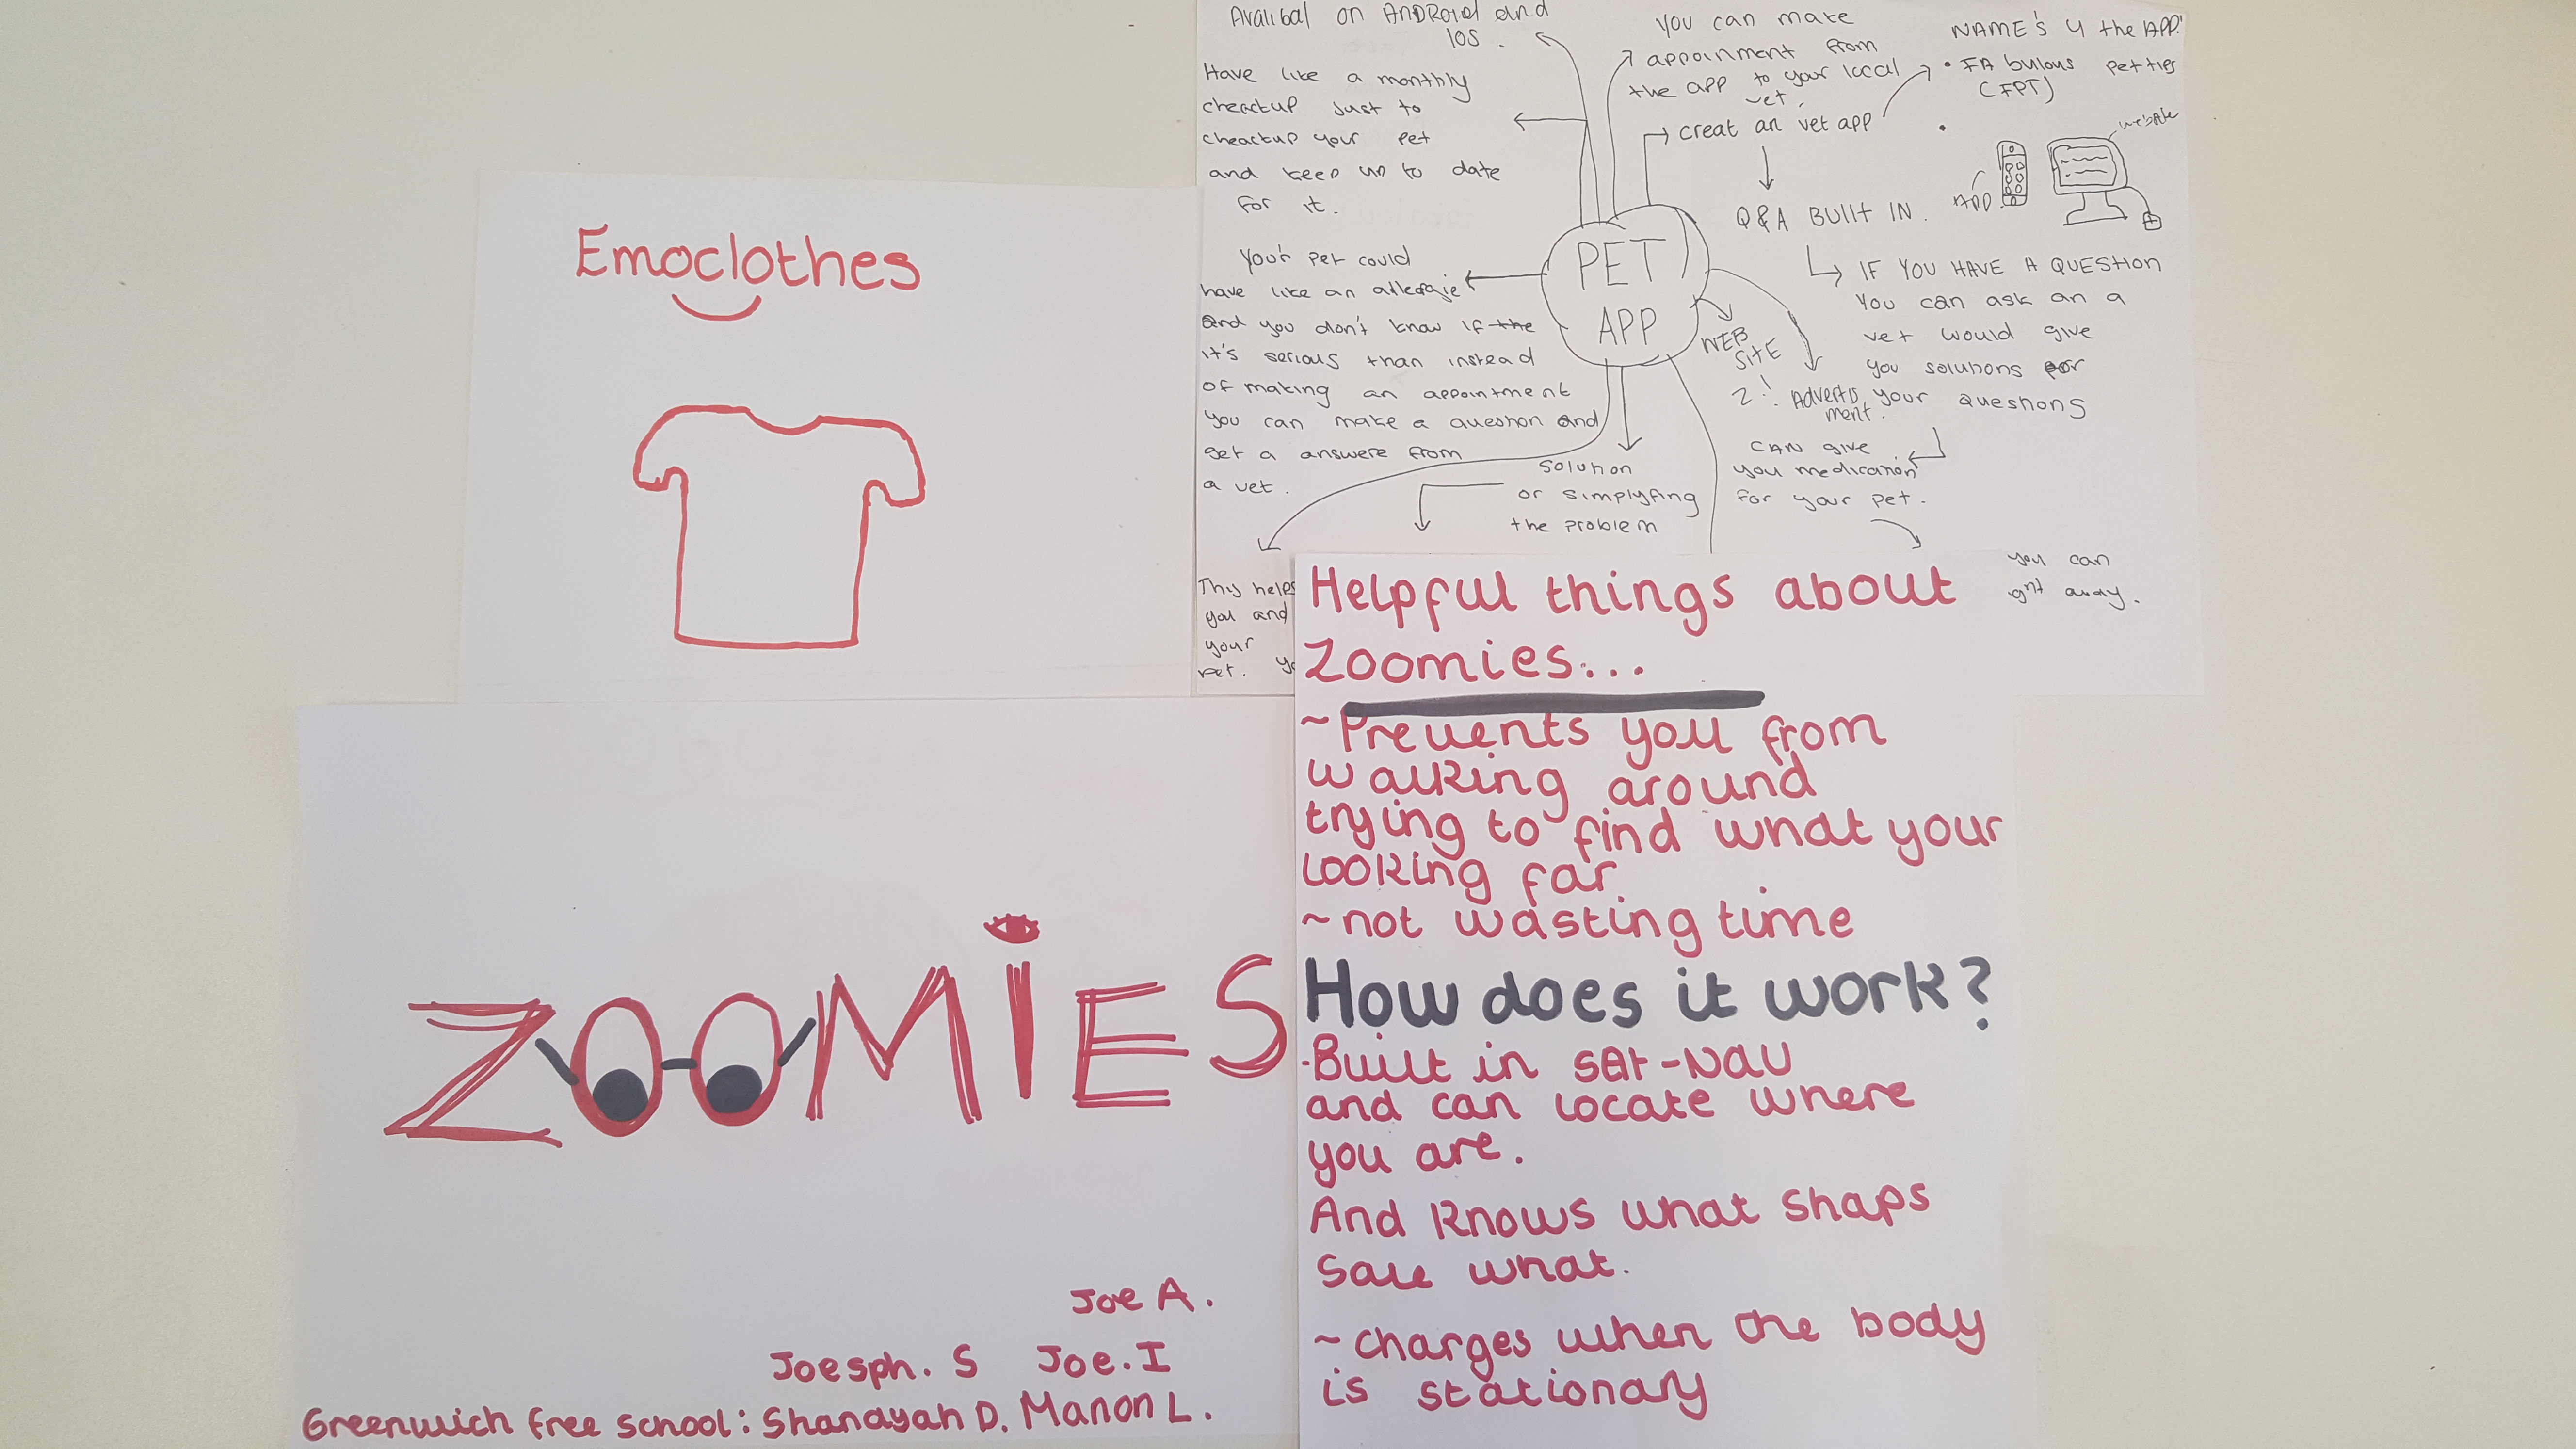 Emoclothes
Avalibal on ANDROID and
IOS.
Have like a monthly
cheackup Just to
cheackup your Pet
and keep up to date
for it.
your Pet could
have like an allergie
and you don't know if the
it's serious than instead
of making an appointment
you can make a question and
get a answere from
a vet.
This helps
you and
your
Pet.
You can make
appoinment from
the app to your local
vet.
creat an vet app
NAME'S 4 the APP!
• FAbulous Pet tips
(FPT)
•
website
APP
Q&A BUIlt IN.
IF YOU HAVE A QUESTION
You can ask an a
vet would give
you solutions for
your questions
PET
APP
WEB
SITE
2!
Advertis
ment.
CAN give
you medication
for your pet.
Solution
or simplyfing
the problem
you can
away.
ZOOMiES
Joe A.
Joesph. S Joe. I
Greenwich free school: Shanayah D. Manon L.
Helpful things about
Zoomies...
~Prevents you from
walking around
trying to find what your
looking far
~not wasting time
How does it work?
·Built in sat-nav
and can locate where
you are.
And knows what shaps
sale what.
~charges when the body
is stationary